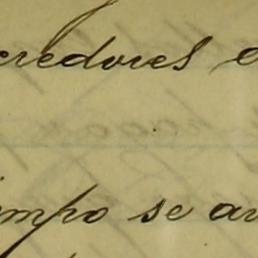 credores e
tempo se au